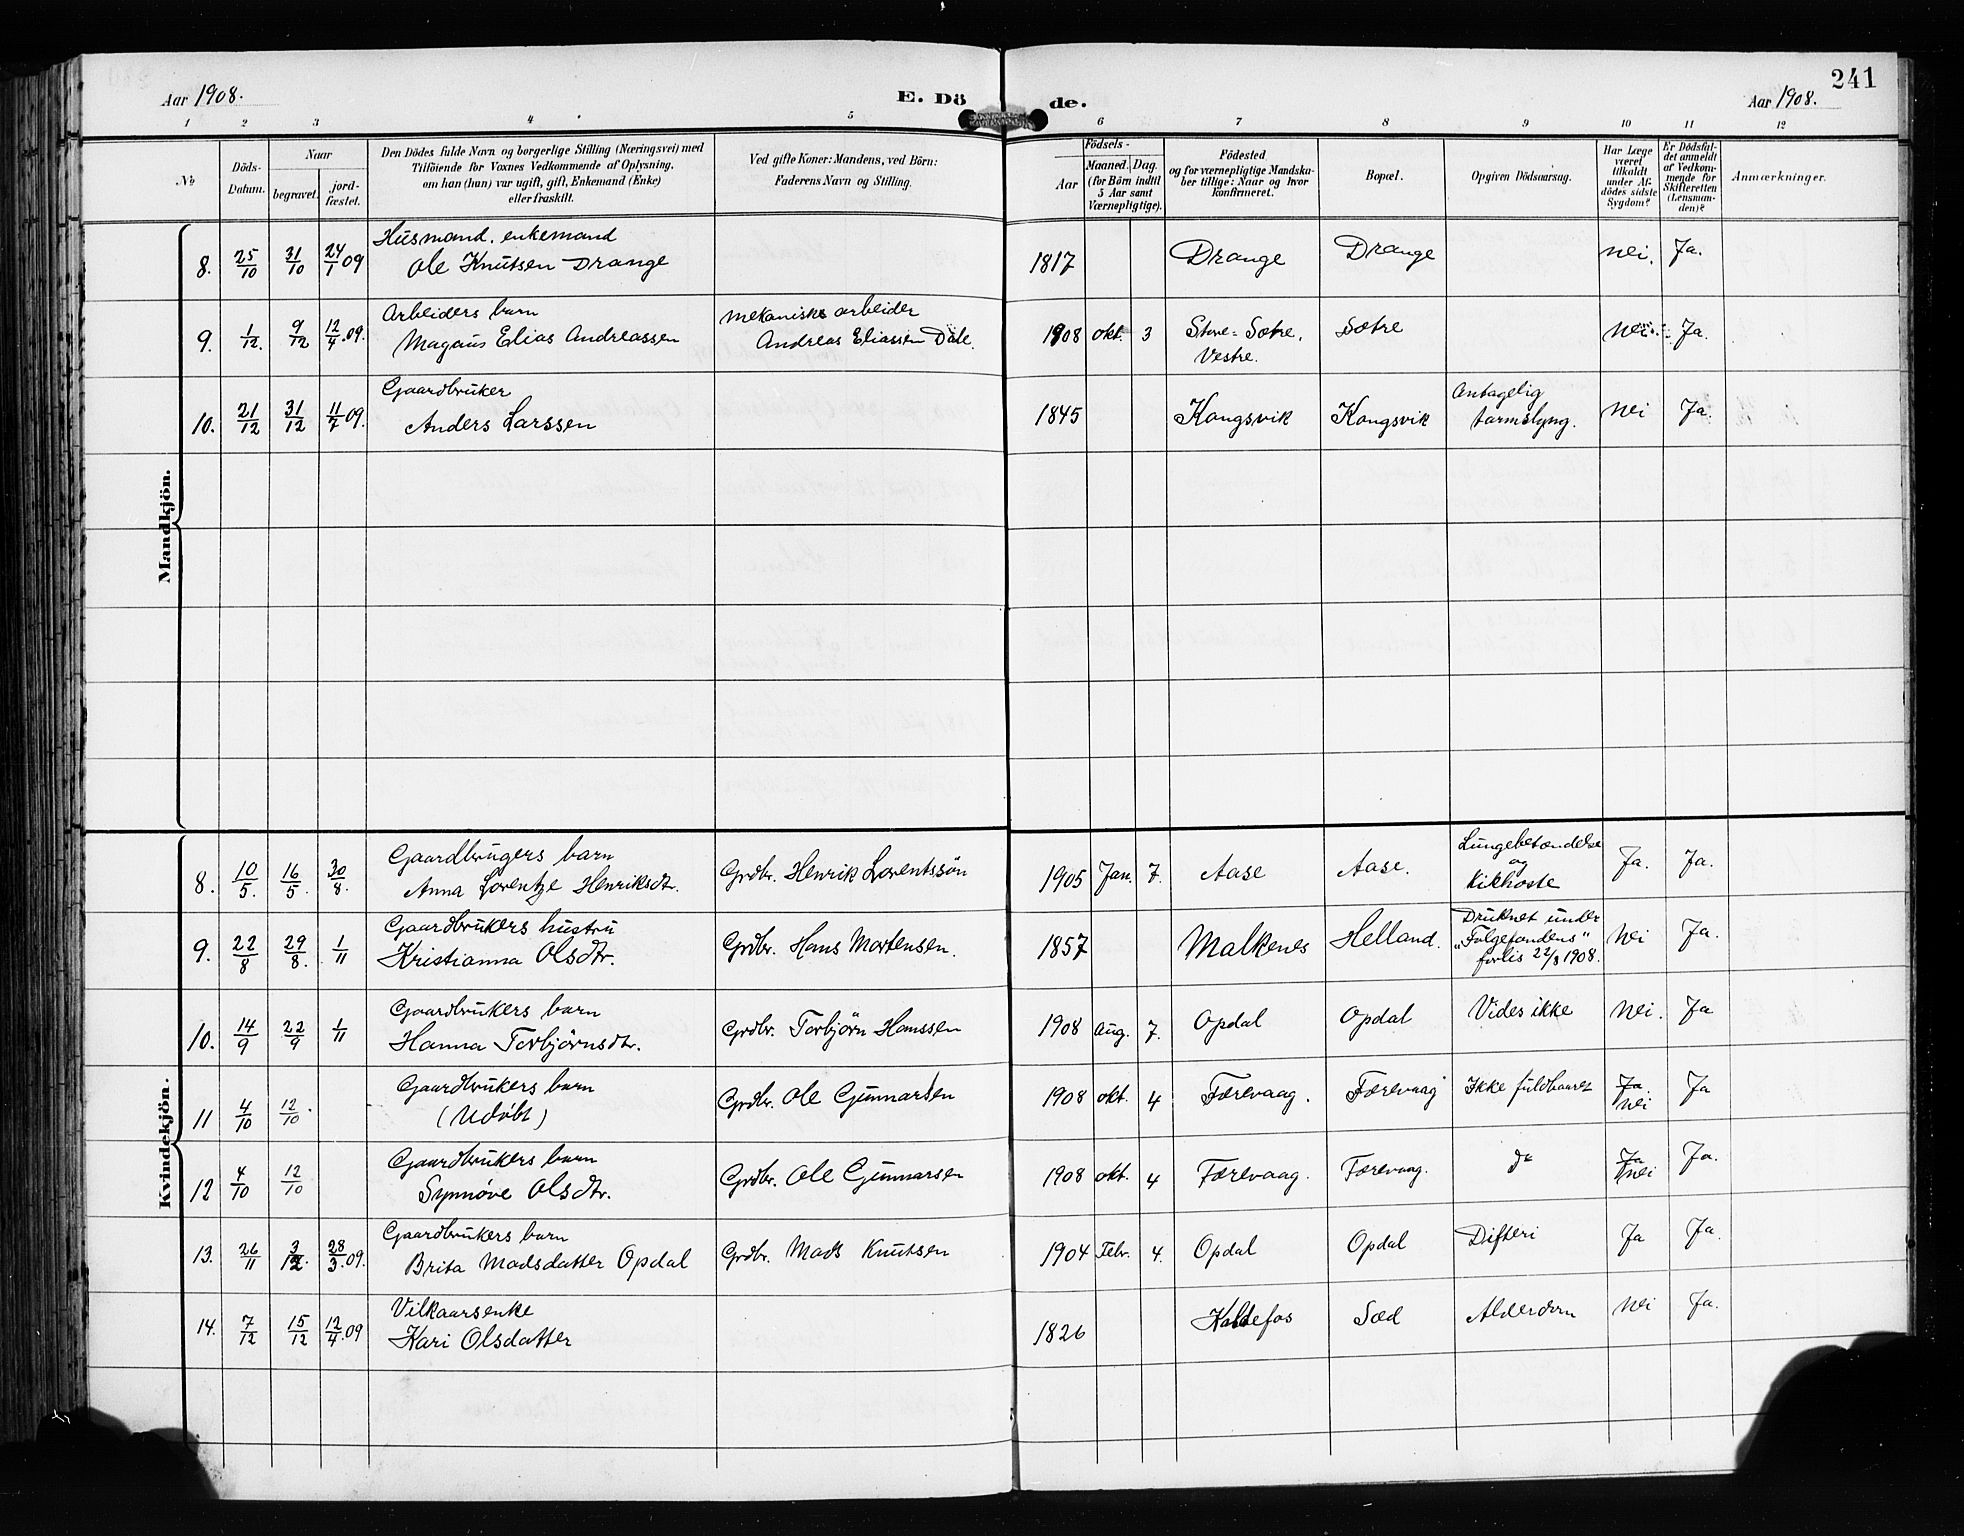 241
Aar 1908.
E. Dö de.
Aar 1908.
1 2 3 4 5 6 7 8 9 10 11 12
No
Döds-Datum.
Naar
begravet.
jord-fæstet.
Den Dödes fulde Navn og borgerlige Stilling (Næringsvei) med
Tilföiende for Voxnes Vedkommende af Oplysning,
om han (hun) var ugift, gift, Enkemand (Enke)
eller fraskilt.
Ved gifte Koner: Mandens, ved Börn:
Faderens Navn og Stilling.
Födsels-
Aar
Maaned. Dag.
(for Börn indtil
5 Aar samt
Værnepligtige).
Födested
og for værnepligtige Mandska-
ber tillige: Naar og hvor
konfirmeret.
Bopæl.
Opgiven Dödsaarsag.
Har Læge
været
tilkaldt
under Af-
dödes sidste
Sygdom?
Er Dödsfal-
det anmeldt
af Vedkom-
mende for
Skifteretten
(Lensman-
den)?
Anmærkninger.
Mandkjön.
Husmand, enkemand
8. 25/10 31/10 24/1 09 Ole Knutsen Drange 1817 Drange Drange nei. Ja.
Arbeiders barn mekanisk arbeider
9. 1/12. 9/12 12/4.09. Magnus Elias Andreassen Andreas Eliassen Dale. 1908 okt. 3 Store-Sætre, Sætre nei Ja.
Vestre.
Gaardbruker Antagelig
10. 21/12 31/12 11/7 09. Anders Larssen 1845 Kongsvik Kongsvik tarmslyng. nei Ja.
Kvindekjön.
Gaardbrugers barn Lungebetændelse
og
8. 10/5. 16/5. 30/8. Anna Lorentze Henriksdtr. Grdbr. Henrik Lorentssön 1905 Jan. 7. Aase Aase. Kikhoste Ja. Ja.
Gaardbrukers hustru Druknet under
9. 22/8 29/8. 1/11 Kristianna Olsdtr. Grdbr. Hans Mortensen. 1857 Malkenes Helland. "Folgefondens" nei Ja.
forlis 22/8 1908.
Gaardbrukers barn
10. 14/9 22/9 1/11 Hanna Torbjörnsdtr. Grdbr. Torbjörn Hanssen 1908 Aug. 7. Opdal Opdal Vides ikke nei. Ja
Gaardbrukers barn
11 4/10 12/10. (Udöbt) Grdbr. Ole Gunnarsen 1908 okt. 4 Færevaag. Færevaag Ikke fuldbaaret Ja nei Ja
Gaardbrukers barn
12 4/10 12/10 Synnöve Olsdtr. Grdbr. Ole Gunnarsen 1908 okt. 4 Færevaag. Færevaag. do Ja nei Ja.
Gaardbrukers barn
13. 26/11 3/12. 28/3.09. Brita Madsdatter Opdal Grdbr. Mads Knutsen 1904 Febr. 4. Opdal Opdal Difteri Ja Ja.
Vilkaarsenke
14. 7/12 15/12 12/4 09 Kari Olsdatter 1826 Kaldefos Sæd Alderdom nei Ja.